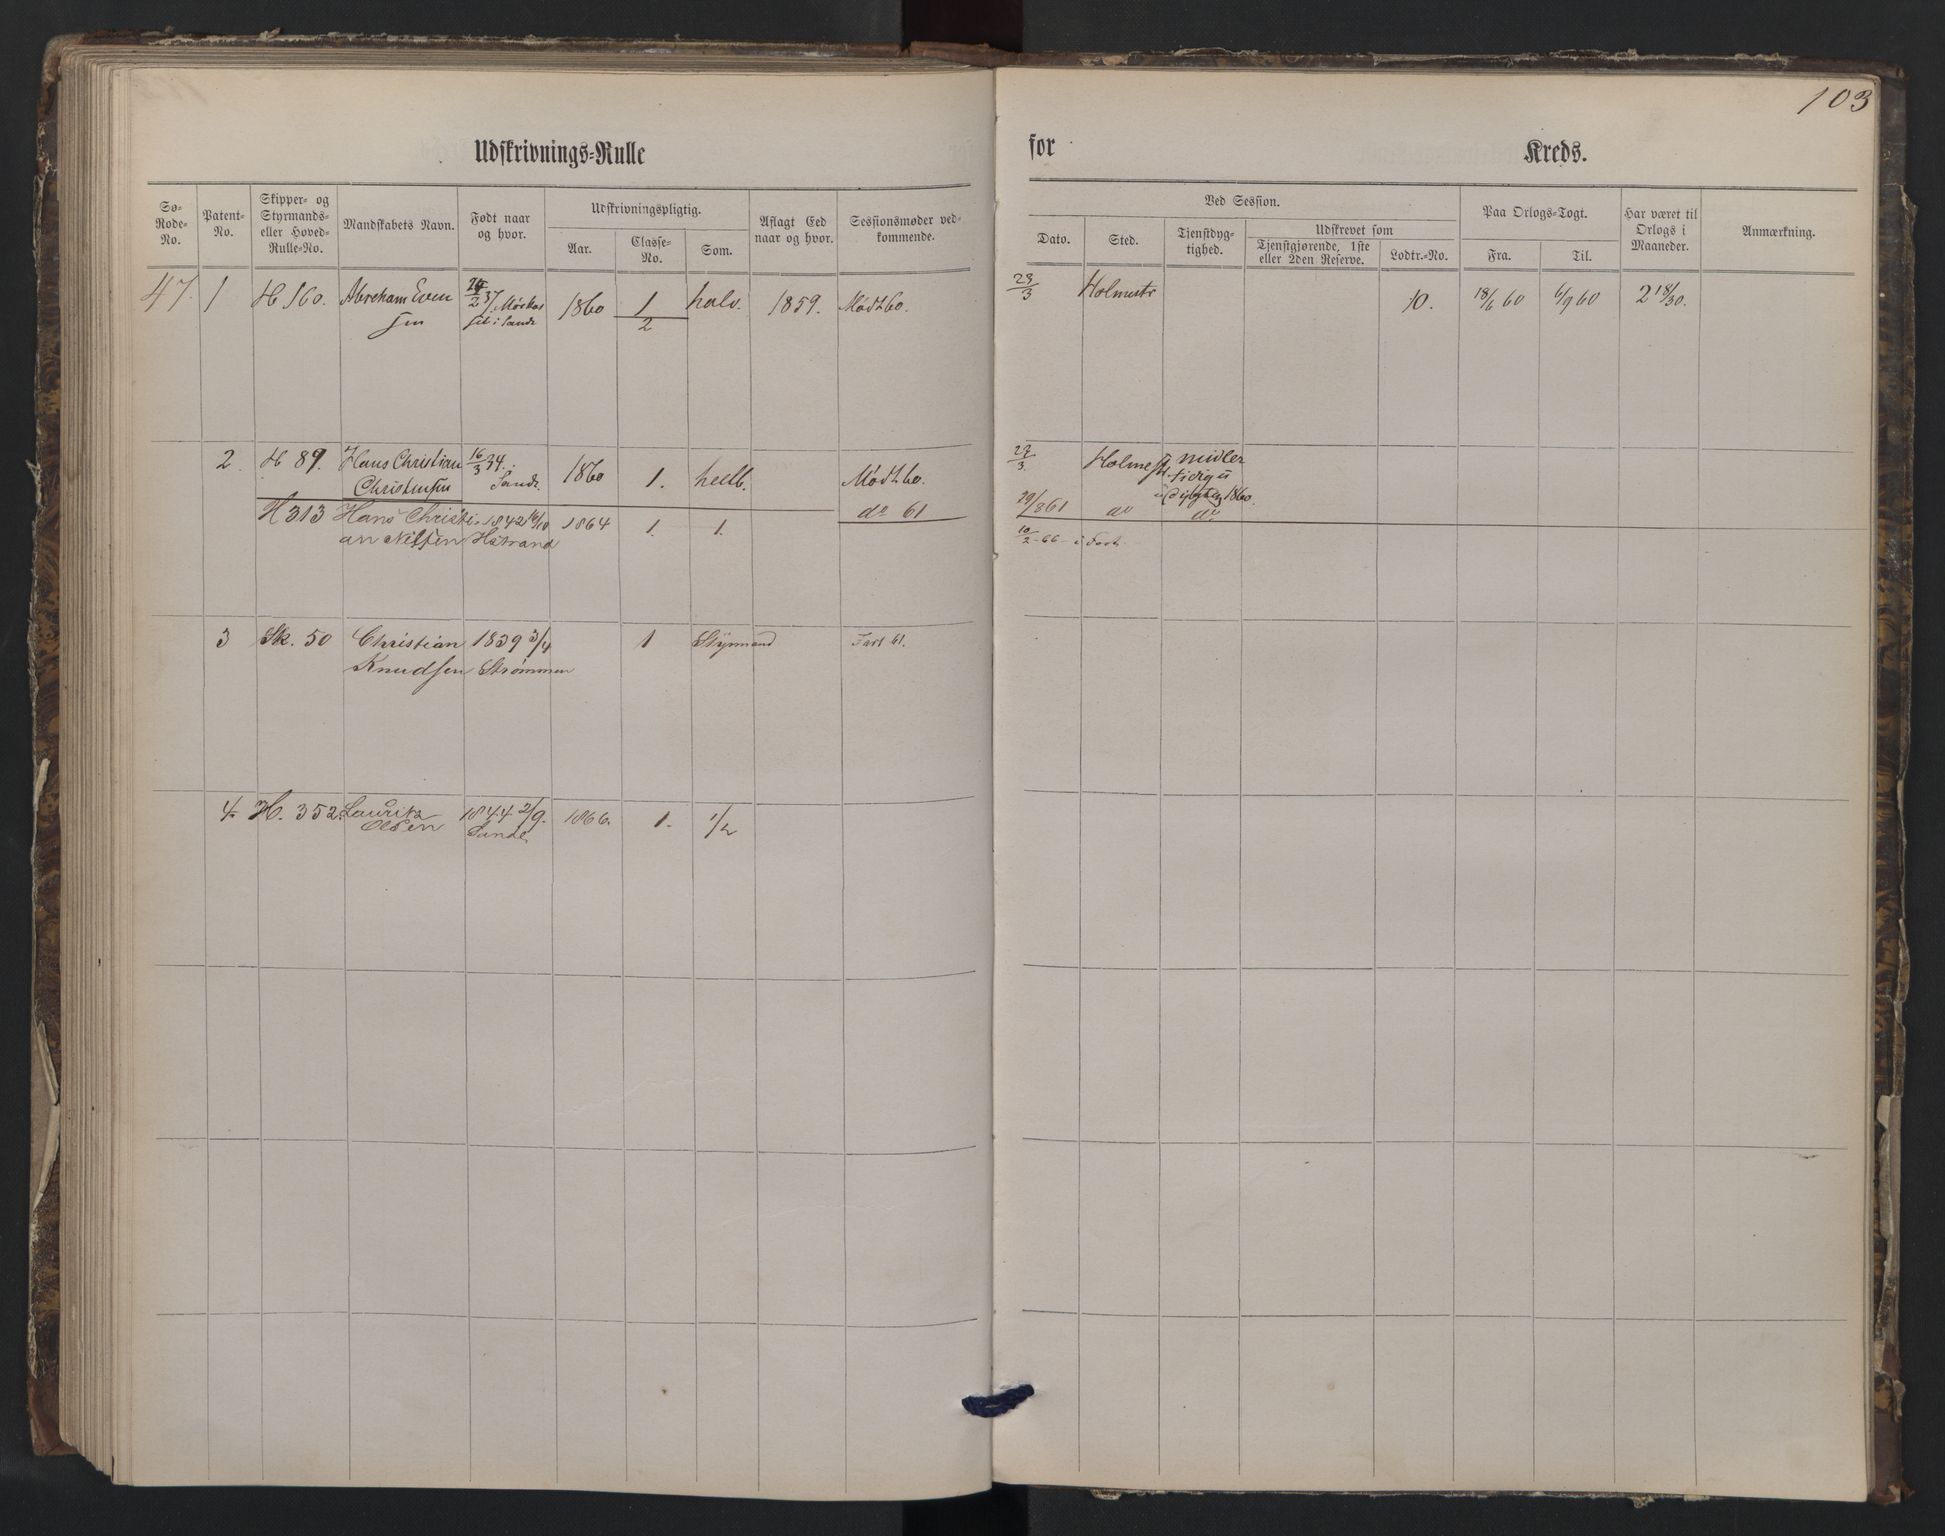 103
Udskrivnings-Rulle
for Kreds.
Sø-Rode-No.
Patent-No.
Skipper- og Styrmands- eller Hoved-Rulle-No.
Mandskabets Navn.
Født naar og hvor.
Udskrivningspligtig.
Aar.
Classe-No.
Som.
Aflagt Eed naar og hvor.
Sessionsmøder vedkommende.
Ved Session.
Dato.
Sted.
Tjenstdygtighed.
Udskrevet som
Tjenstgjørende, 1ste eller 2den Reserve.
Lodtr.-No.
Paa Orlogs-Togt.
Fra.
Til.
Har været til Orlogs i Maaneder.
Anmærkning.
47. 1 H 160. Abraham Even 1860 1 halv. 1859. Mødt 60. 23/3 Holmestr 10. 18/6 60 6/9 60 2 18/30.
sen i Sande 2
2. H 89. Hans Christian 16/3 34. 1860 1. heelb. Mødt 60. 23/3 Holmestr midler
Christensen Sande 1860.
do 61 29/8 61 do do
H 313 Hans Christi 1842 16/10 1864 1. 1. 10/2 - 66 - i Fart.
an Nilssen Hstrand
3 Sk. 50 Christian 1839 3/4 1 Styrmand Fart 61.
Knudsen Strømmen
4. H. 352. Lauritz 1844 2/9. 1866. 1. 1/2
Olsen Sande